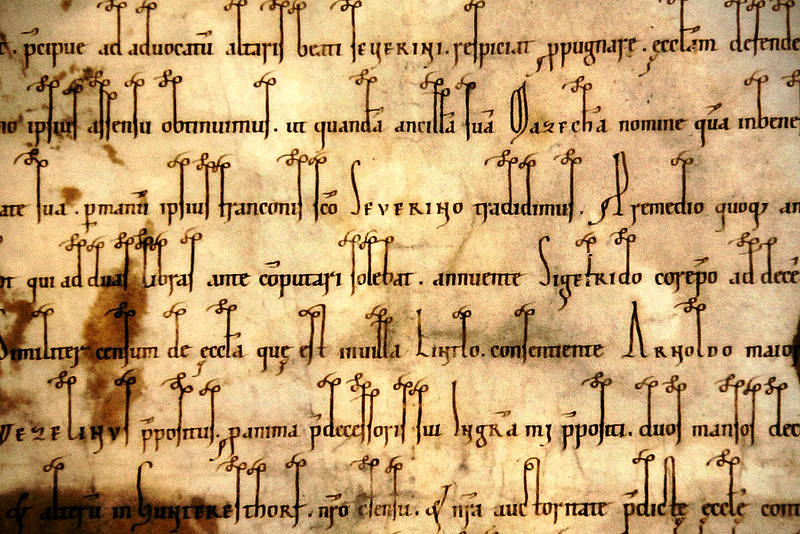 pcipue ad aduocatū altaris beati SEVERINI. respiciat ꝓpugnare. ęcclam defende
no ipsius assensu obtinuimus. ut quandā ancillā suā Gazechā nomine q̄a inbene
ate sua. ꝑmanū ipsius franconis sc̄o SEVERINO tradidimus. Premedio quoq; an
qui ad duas libras ante cōputari solebat. annuente Sigefrido corep̄o ad decē
Similiter censum de ęccła quę est inuilla Lintlo. consentiente ARNOLDO maior
WEZELINUS p̄positus. ꝓanima p̄decessoris sui Ingrāmi p̄positi. duos mansos dec
& alterū in hunteresthorf. nr̄o c̄sensu. & nr̄a auctoritate p̄dictę ęcclę com